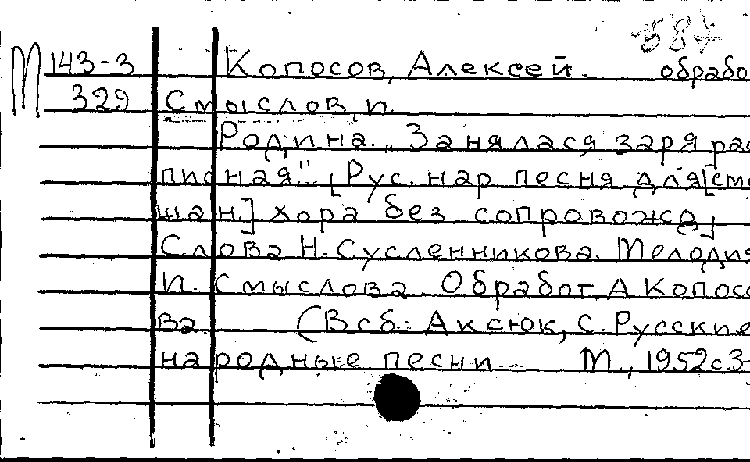 587
М 143-3 Копосов, Алексей. обрабо
329 Смыслов, И.
Родина. "Занялася заря рас
писная". [Рус. нар песня для [сме
шан.] хора без сопровожд]
Слова Н. Сусленникова. Мелодия
И. Смыслова. Обработ. А Копосо
ва. (В сб.: Аксюк, С. Русские
народные песни М., 1952 с.3-